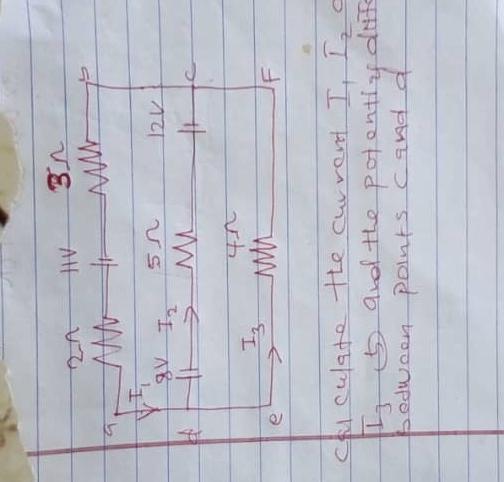 2Ω 11V 3Ω
a b
I1
8V I2 5Ω 12V
d c
I3 4Ω
e F
Calculate the current I1 I2
I3 (5) and the potential
between points c and d